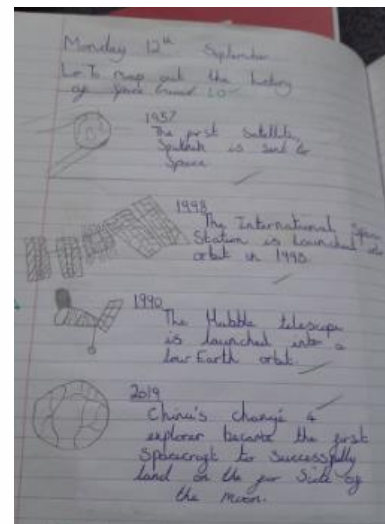 Monday 12th September
Lo To map out the history
of space travel LO
1957
The first Satellite,
Sputnik is sent to
space
1998
The International Space
Station is launched into
orbit in 1998.
1990
The Hubble telescope
is launched into a
low Earth orbit.
2019
China's chang'e 4
explorer became the first
spacecraft to successfully
land on the far side of
the moon.